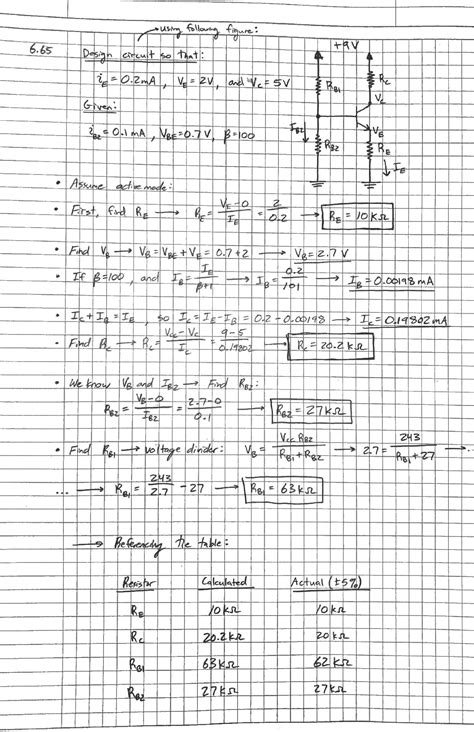 → using following figure:
6.65 Design circuit so that:
i_E = 0.2mA, V_E = 2V, and V_C = 5V
Given:
i_B2 = 0.1mA, V_BE = 0.7V, β=100
+9V
R_B1
R_C
V_C
I_B2
R_B2
V_E
R_E
I_E
• Assume active mode:
• First, find R_E → R_E = (V_E-0)/I_E = 2/0.2 → R_E = 10kΩ
• Find V_B → V_B = V_BE + V_E = 0.7+2 → V_B = 2.7V
• If β=100, and I_B = I_E/(β+1) → I_B = 0.2/101 → I_B = 0.00198mA
• I_C + I_B = I_E, so I_C = I_E - I_B = 0.2 - 0.00198 → I_C = 0.19802mA
• Find R_C → R_C = (V_CC - V_C)/I_C = (9-5)/0.19802 → R_C = 20.2kΩ
• We know V_B and I_B2 → Find R_B2:
R_B2 = (V_B-0)/I_B2 = (2.7-0)/0.1 → R_B2 = 27kΩ
• Find R_B1 → voltage divider: V_B = V_CC R_B2/(R_B1 + R_B2) → 2.7 = 243/(R_B1 + 27) → ...
... → R_B1 = 243/2.7 - 27 → R_B1 = 63kΩ
→ Referencing the table:
Resistor Calculated Actual (±5%)
R_E 10kΩ 10kΩ
R_C 20.2kΩ 20kΩ
R_B1 63kΩ 62kΩ
R_B2 27kΩ 27kΩ